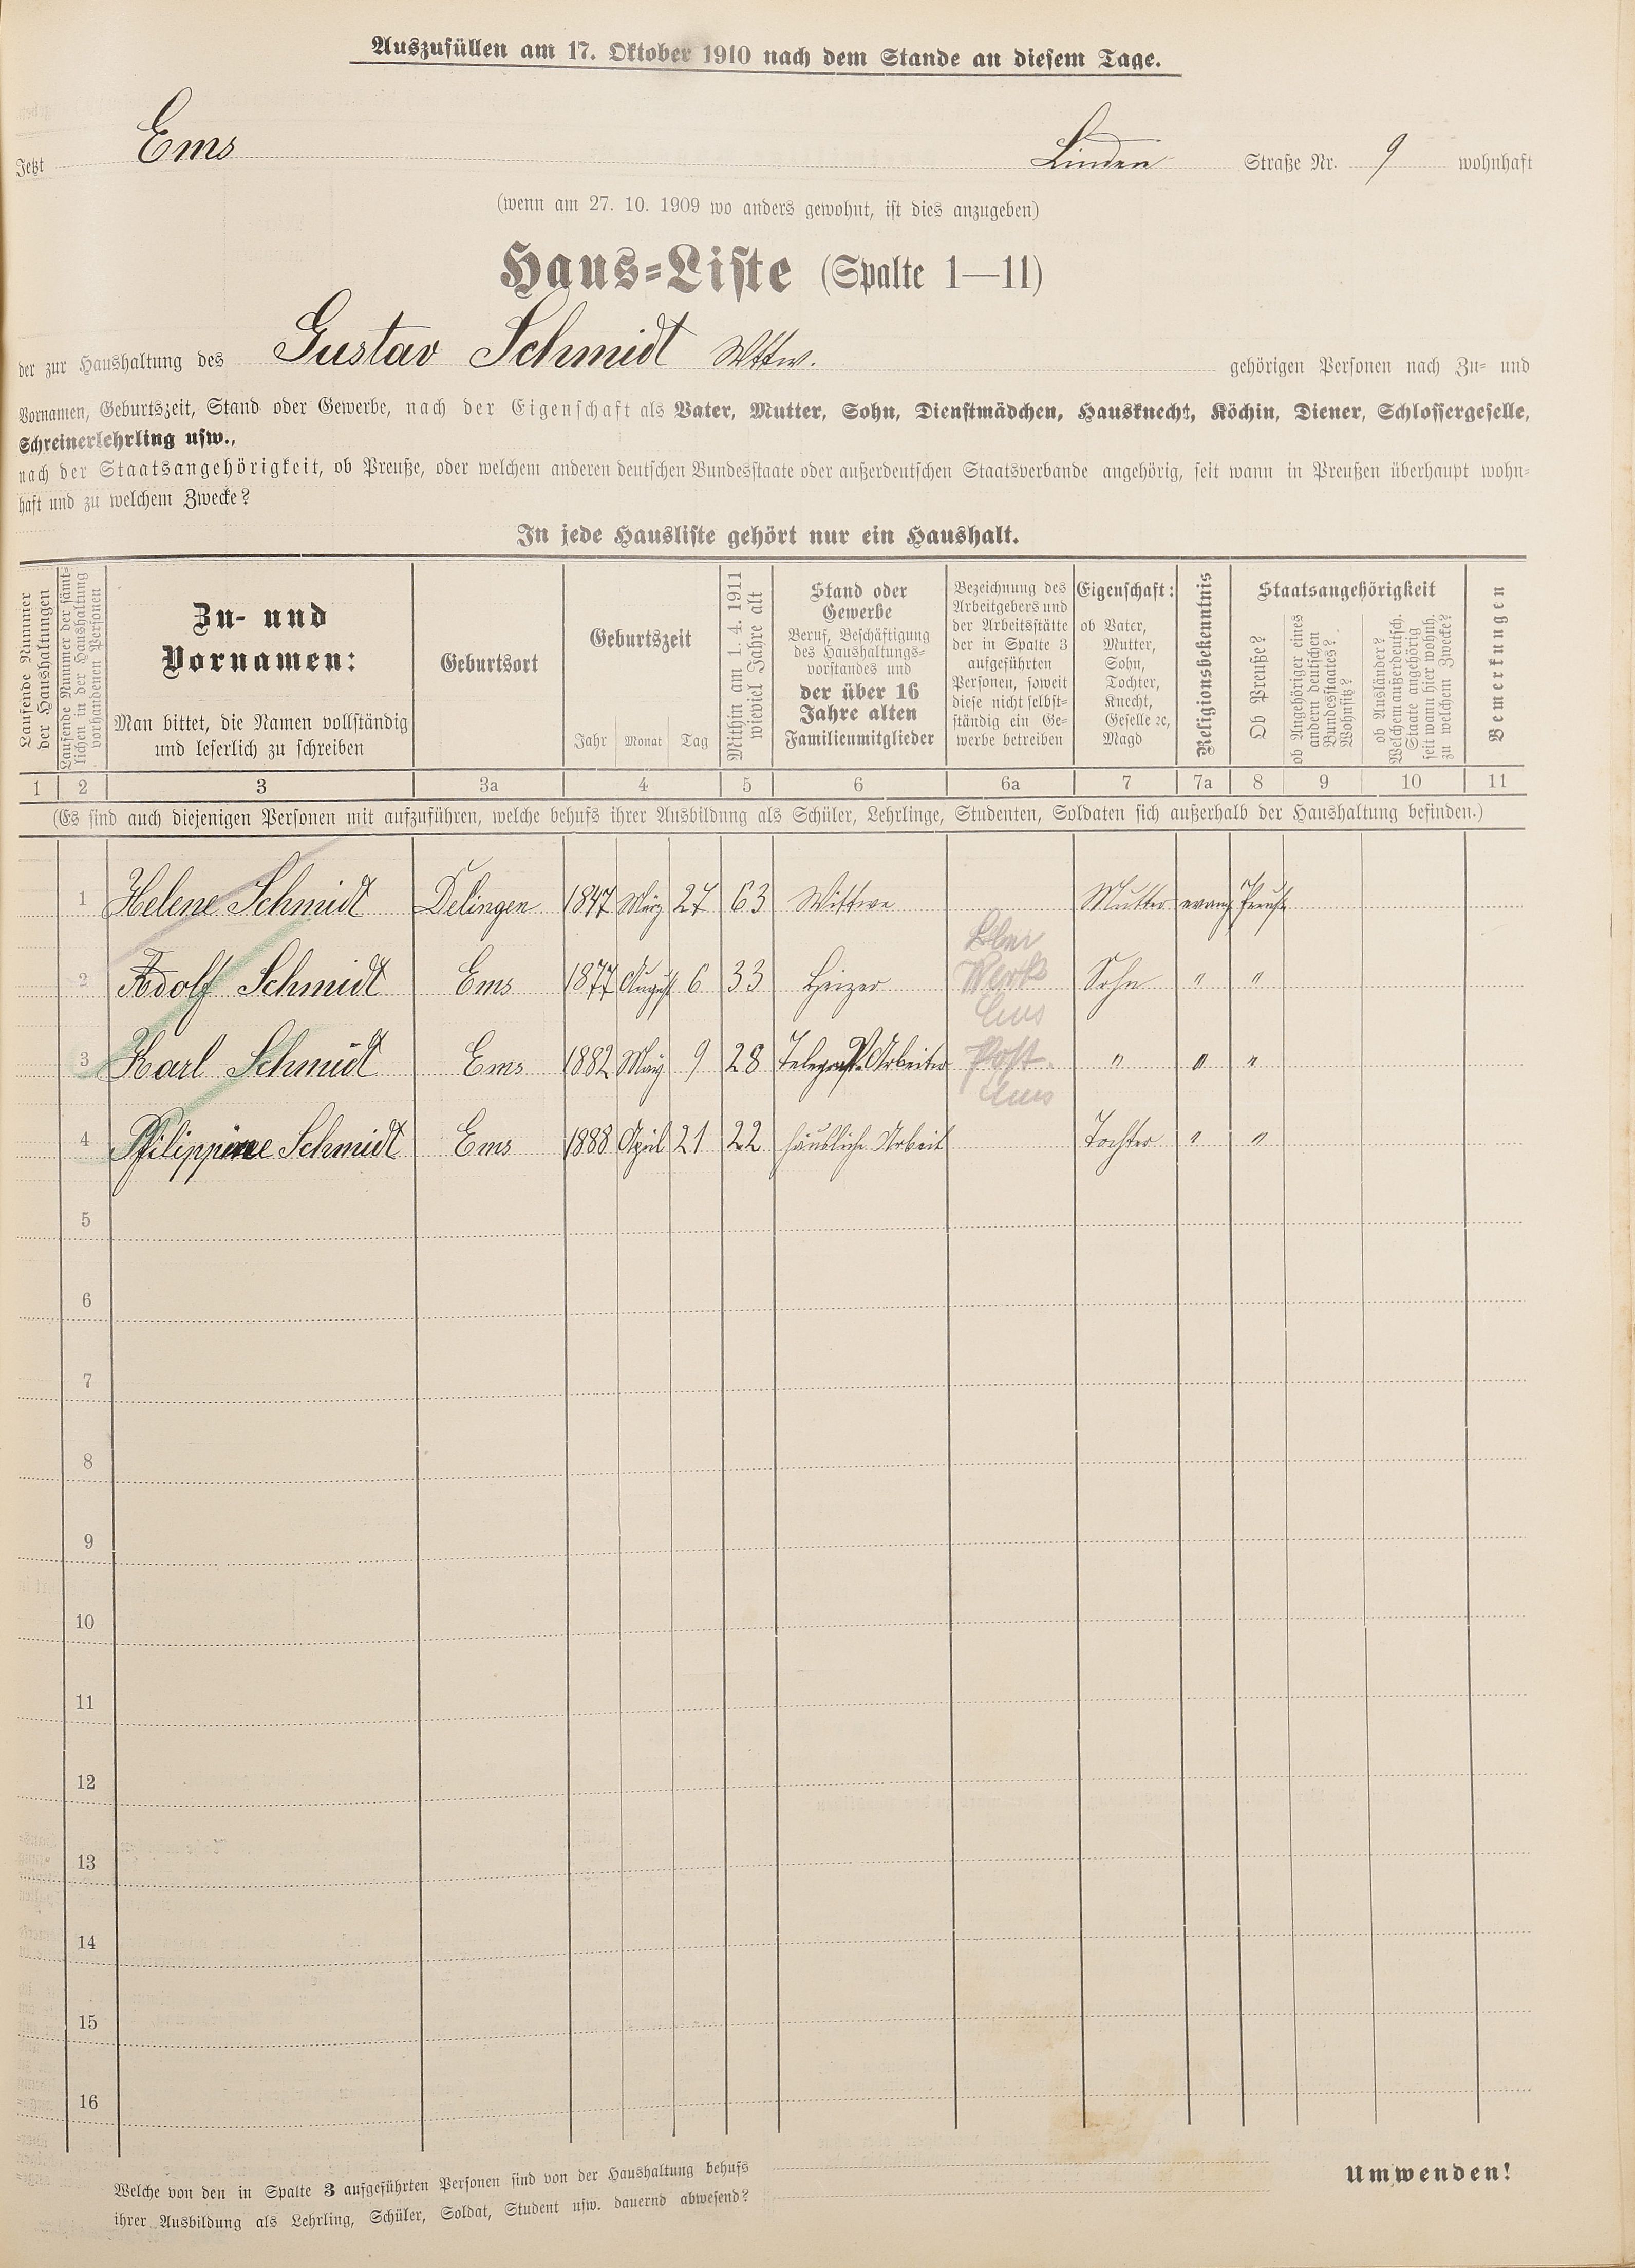 Auszufüllen am 17. Oktober 1910 nach dem Stande an diesem Tage.
Jetzt Ems Linden Straße Nr. 9 wohnhaft
(wenn am 27. 10. 1909 wo anders gewohnt, ist dies anzugeben)
Haus-Liste (Spalte 1—11)
der zur Haushaltung des Gustav Schmidt Wttw. gehörigen Personen nach Zu- und
Vornamen, Geburtszeit, Stand oder Gewerbe, nach der Eigenschaft als Vater, Mutter, Sohn, Dienstmädchen, Hausknecht, Köchin, Diener, Schlossergeselle,
Schreinerlehrling usw.,
nach der Staatsangehörigkeit, ob Preuße, oder welchem anderen deutschen Bundesstaate oder außerdeutschen Staatsverbande angehörig, seit wann in Preußen überhaupt wohn-
haft und zu welchem Zwecke?
In jede Hausliste gehört nur ein Haushalt.
Laufende Nummer
der Haushaltungen
Laufende Nummer der sämt-
lichen in der Haushaltung
vorhandenen Personen
Zu- und
Vornamen:
Man bittet, die Namen vollständig
und leserlich zu schreiben
Geburtsort
Geburtszeit
Jahr Monat Tag
Mithin am 1. 4. 1911
wieviel Jahre alt
Stand oder
Gewerbe
Beruf, Beschäftigung
des Haushaltungs-
vorstandes und
der über 16
Jahre alten
Familienmitglieder
Bezeichnung des
Arbeitgebers und
der Arbeitsstätte
der in Spalte 3
aufgeführten
Personen, soweit
diese nicht selbst-
ständig ein Ge-
werbe betreiben
Eigenschaft:
ob Vater,
Mutter,
Sohn,
Tochter,
Knecht,
Geselle ꝛc,
Magd
Religionsbekenntnis
Staatsangehörigkeit
Ob Preuße?
ob Angehöriger eines
andern deutschen
Bundesstaates?
Wohnsitz?
ob Ausländer?
Welchem außerdeutsch.
Staate angehörig
seit wann hier wohnh.
zu welchem Zwecke?
Bemerkungen
1 2 3 3a 4 5 6 6a 7 7a 8 9 10 11
(Es sind auch diejenigen Personen mit aufzuführen, welche behufs ihrer Ausbildung als Schüler, Lehrlinge, Studenten, Soldaten sich außerhalb der Haushaltung befinden.)
1 Helene Schmidt Delingen 1847 März 27 63 Wittwe Mutter evang. Preuße
2 Adolf Schmidt Ems 1877 August 6 33 Heizer Blei Werk Ems Sohn " "
3 Karl Schmidt Ems 1882 May 9 28 Telegraph. Arbeiter Post. Ems " " "
4 Philippine Schmidt Ems 1888 April 21 22 häusliche Arbeit Tochter " "
5
6
7
8
9
10
11
12
13
14
15
16
Welche von den in Spalte 3 aufgeführten Personen sind von der Haushaltung behufs
ihrer Ausbildung als Lehrling, Schüler, Soldat, Student usw. dauernd abwesend?
Umwenden!